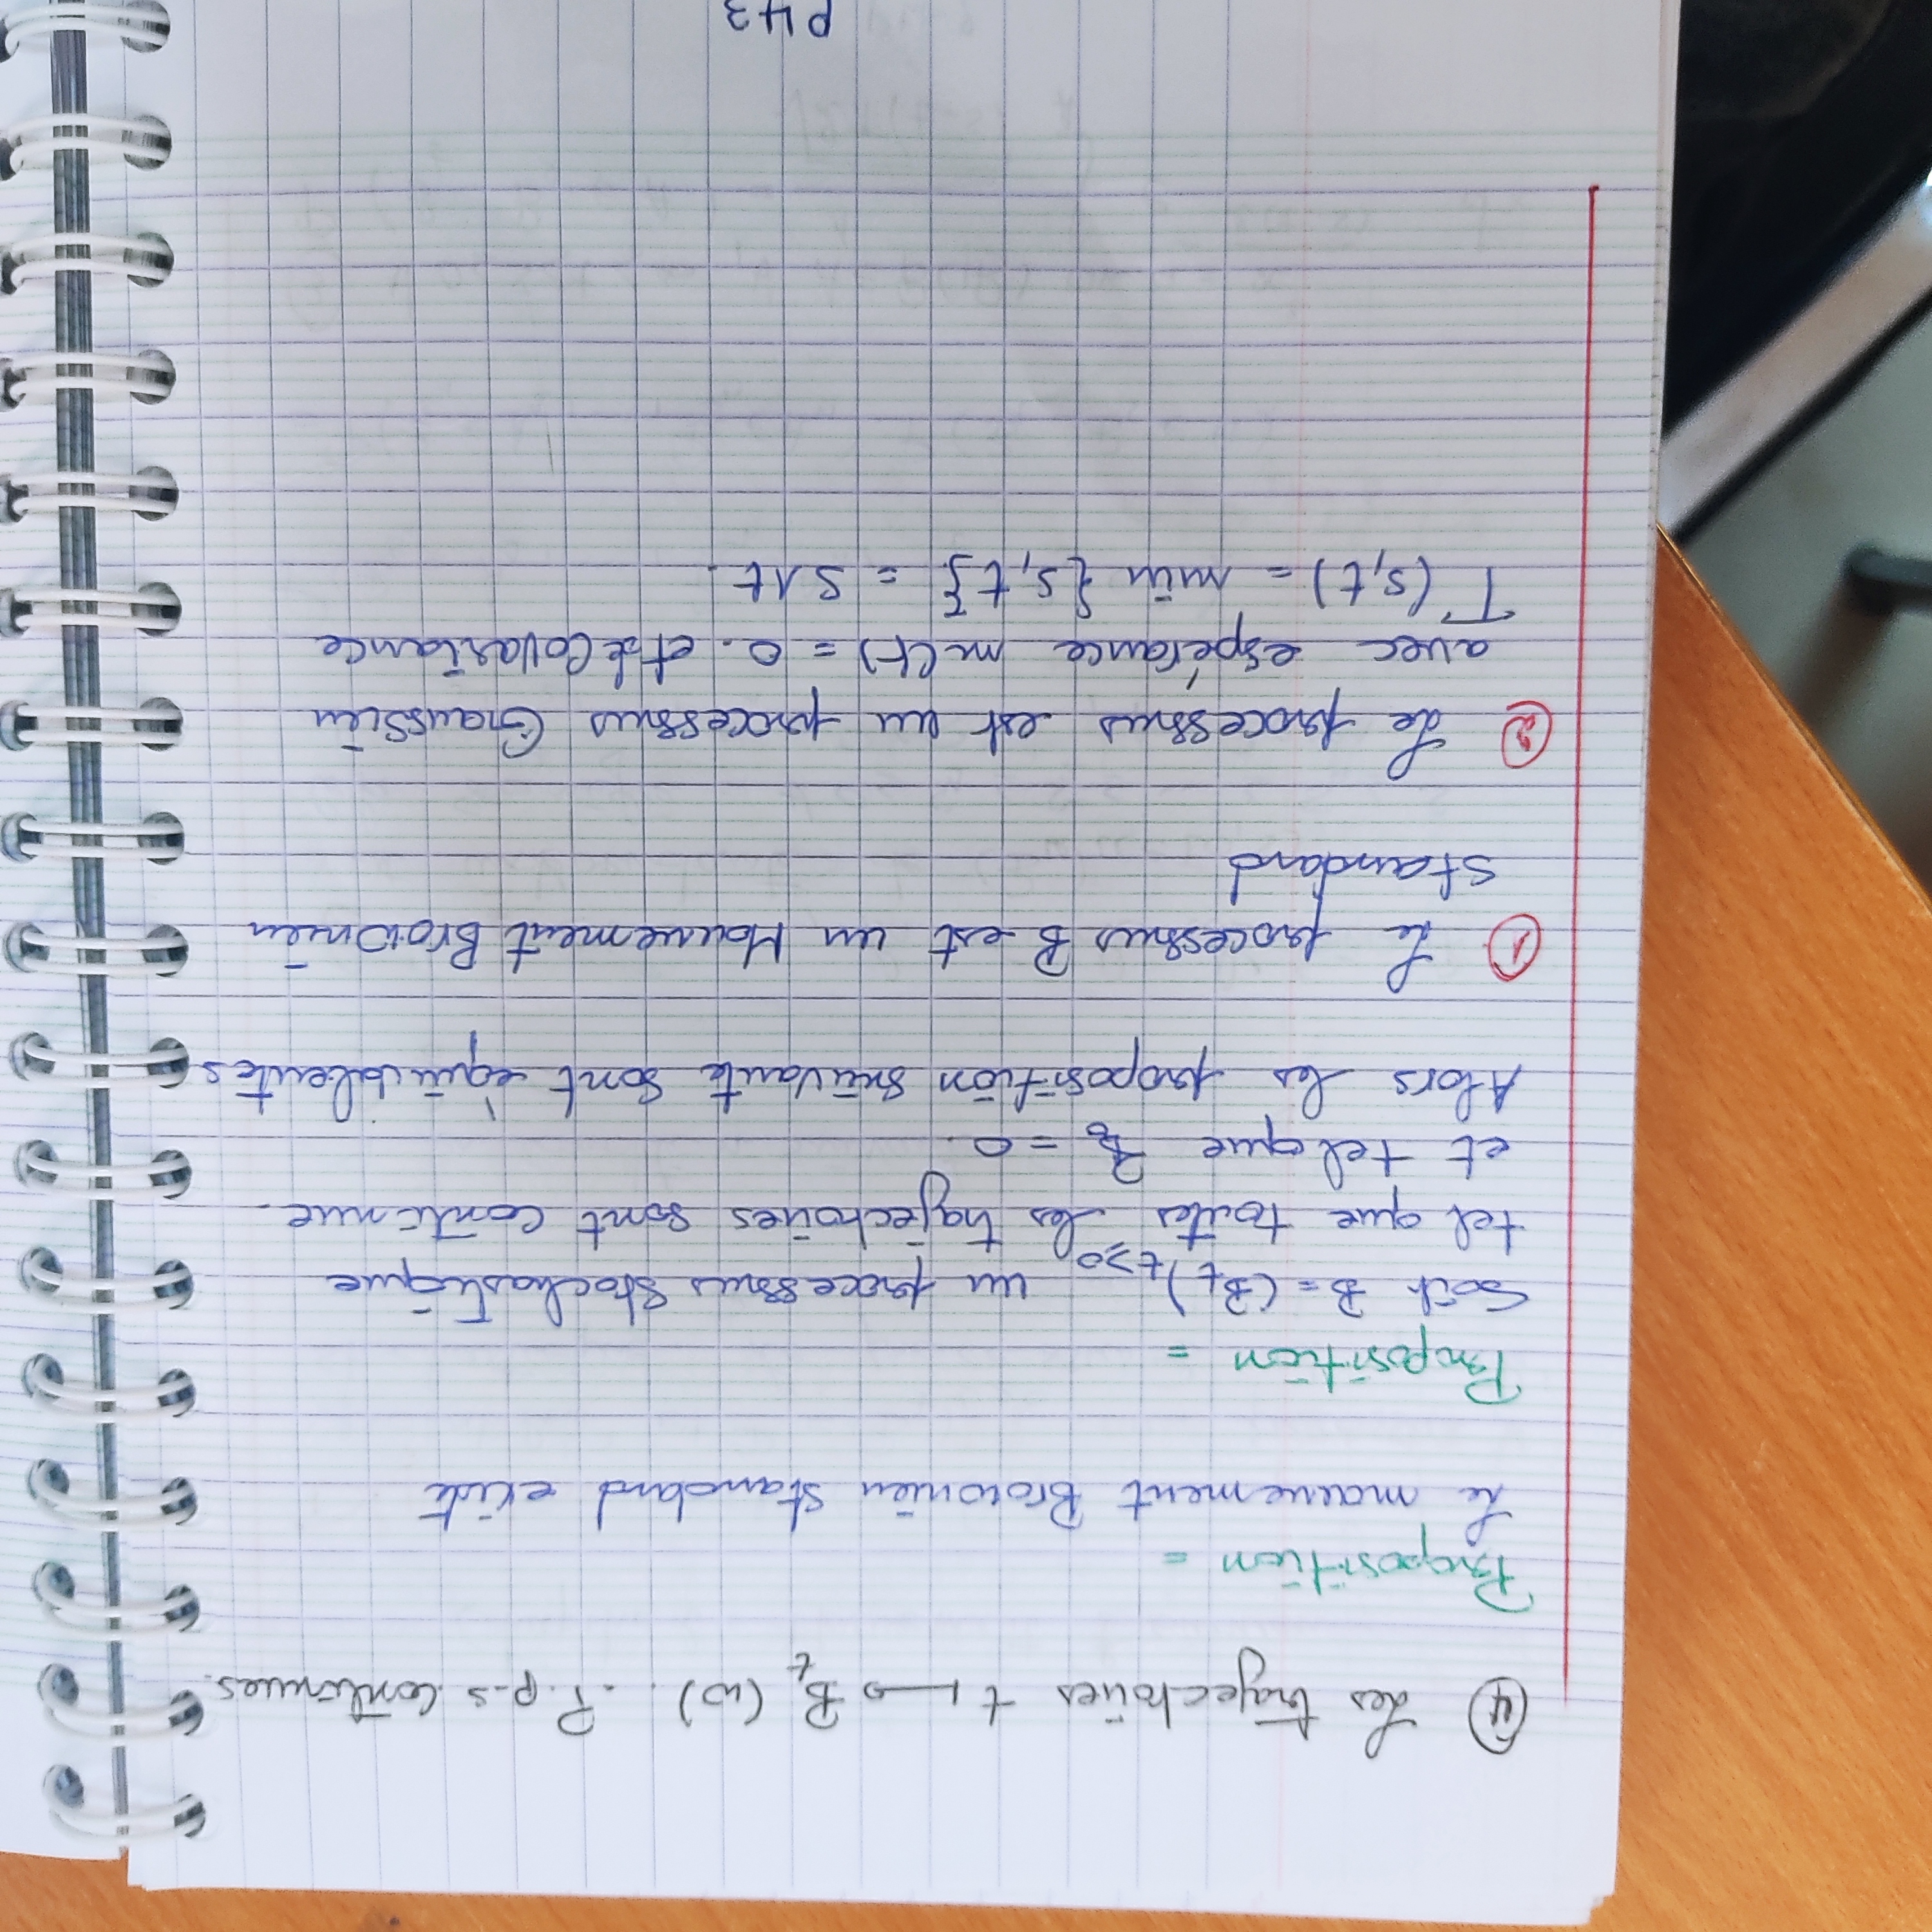 ④ Les trajectoires t ⟼ B_t (ω). P.p.s continues.
Proposition =
Le mouvement Brownien standard existe
Proposition =
Soit B = (B_t)_{t≥0} un processus stochastique
tel que toutes les trajectoires sont continue.
et tel que B_0 = 0.
Alors les proposition suivante sont équivalentes
① Le processus B est un Mouvement Brownien
standard
② Le processus est un processus Gaussien
avec espérance m(t) = 0. et de Covariance
Γ(s,t) = min {s,t} = s∧t.
P43